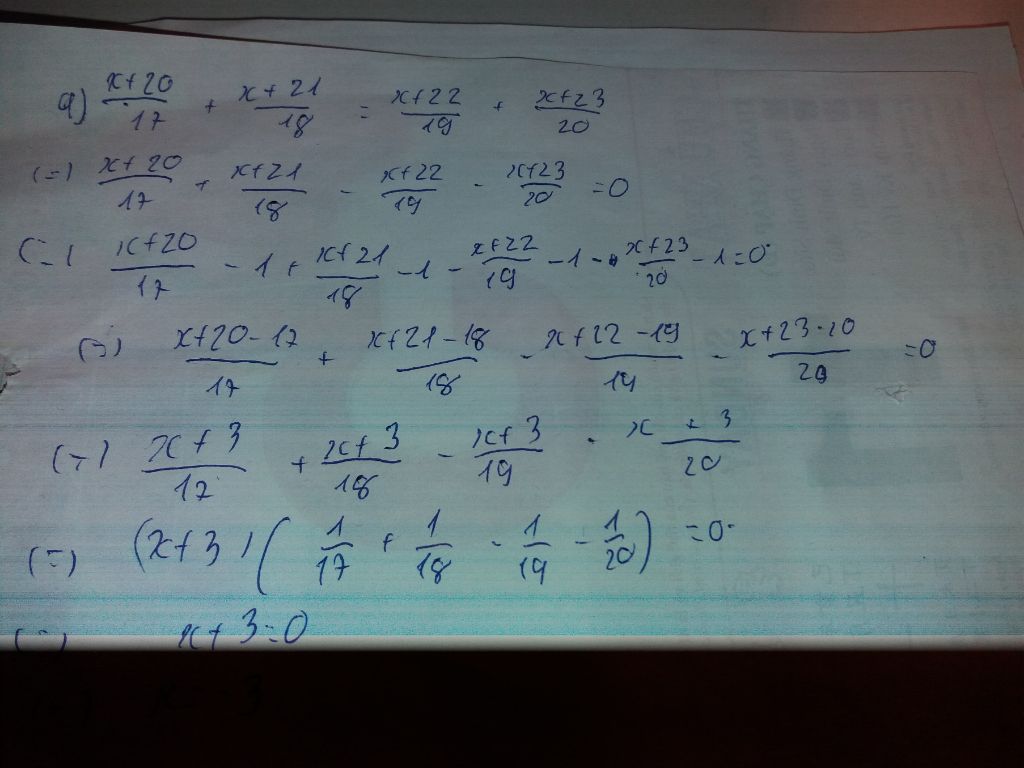 a) \frac{x+20}{17} + \frac{x+21}{18} = \frac{x+22}{19} + \frac{x+23}{20}
(=) \frac{x+20}{17} + \frac{x+21}{18} - \frac{x+22}{19} - \frac{x+23}{20} = 0
(=) \frac{x+20}{17} - 1 + \frac{x+21}{18} - 1 - \frac{x+22}{19} - 1 - \frac{x+23}{20} - 1 = 0
(=) \frac{x+20-17}{17} + \frac{x+21-18}{18} - \frac{x+22-19}{19} - \frac{x+23-20}{20} = 0
(=) \frac{x+3}{17} + \frac{x+3}{18} - \frac{x+3}{19} - \frac{x+3}{20}
(=) (x+3) ( \frac{1}{17} + \frac{1}{18} - \frac{1}{19} - \frac{1}{20} ) = 0
(=) x+3=0
(=) x=-3